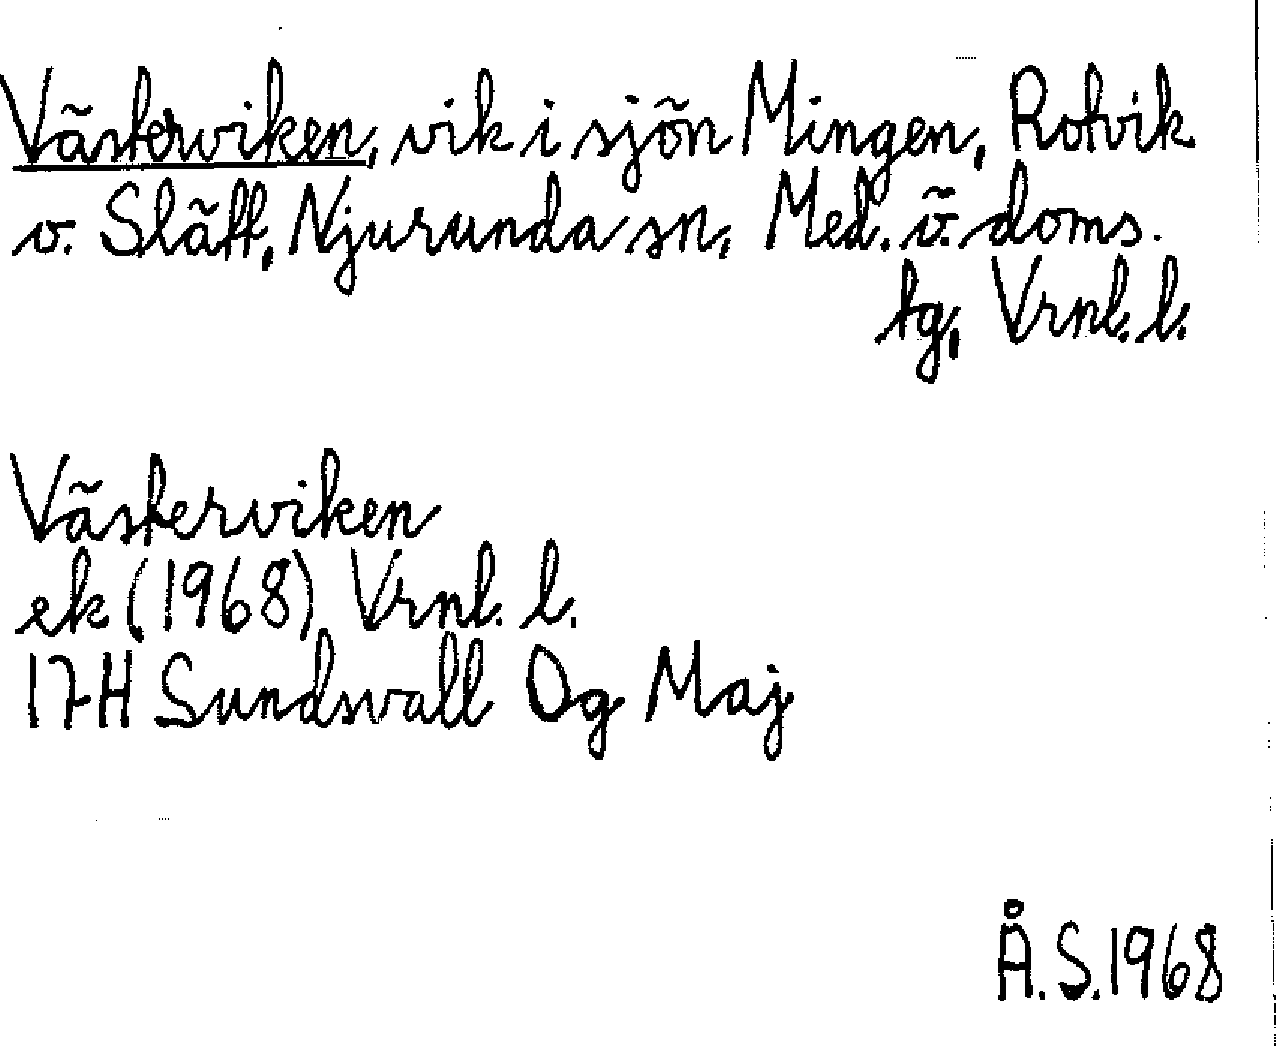 Västerviken, vik i sjön Mingen, Rotvik
v. Slätt, Njurunda sn, Med. ö. doms.
tg, Vrnl. l.
Västerviken
ek (1968) Vrnl. l.
17H Sundsvall Og Maj
Å.S.1968